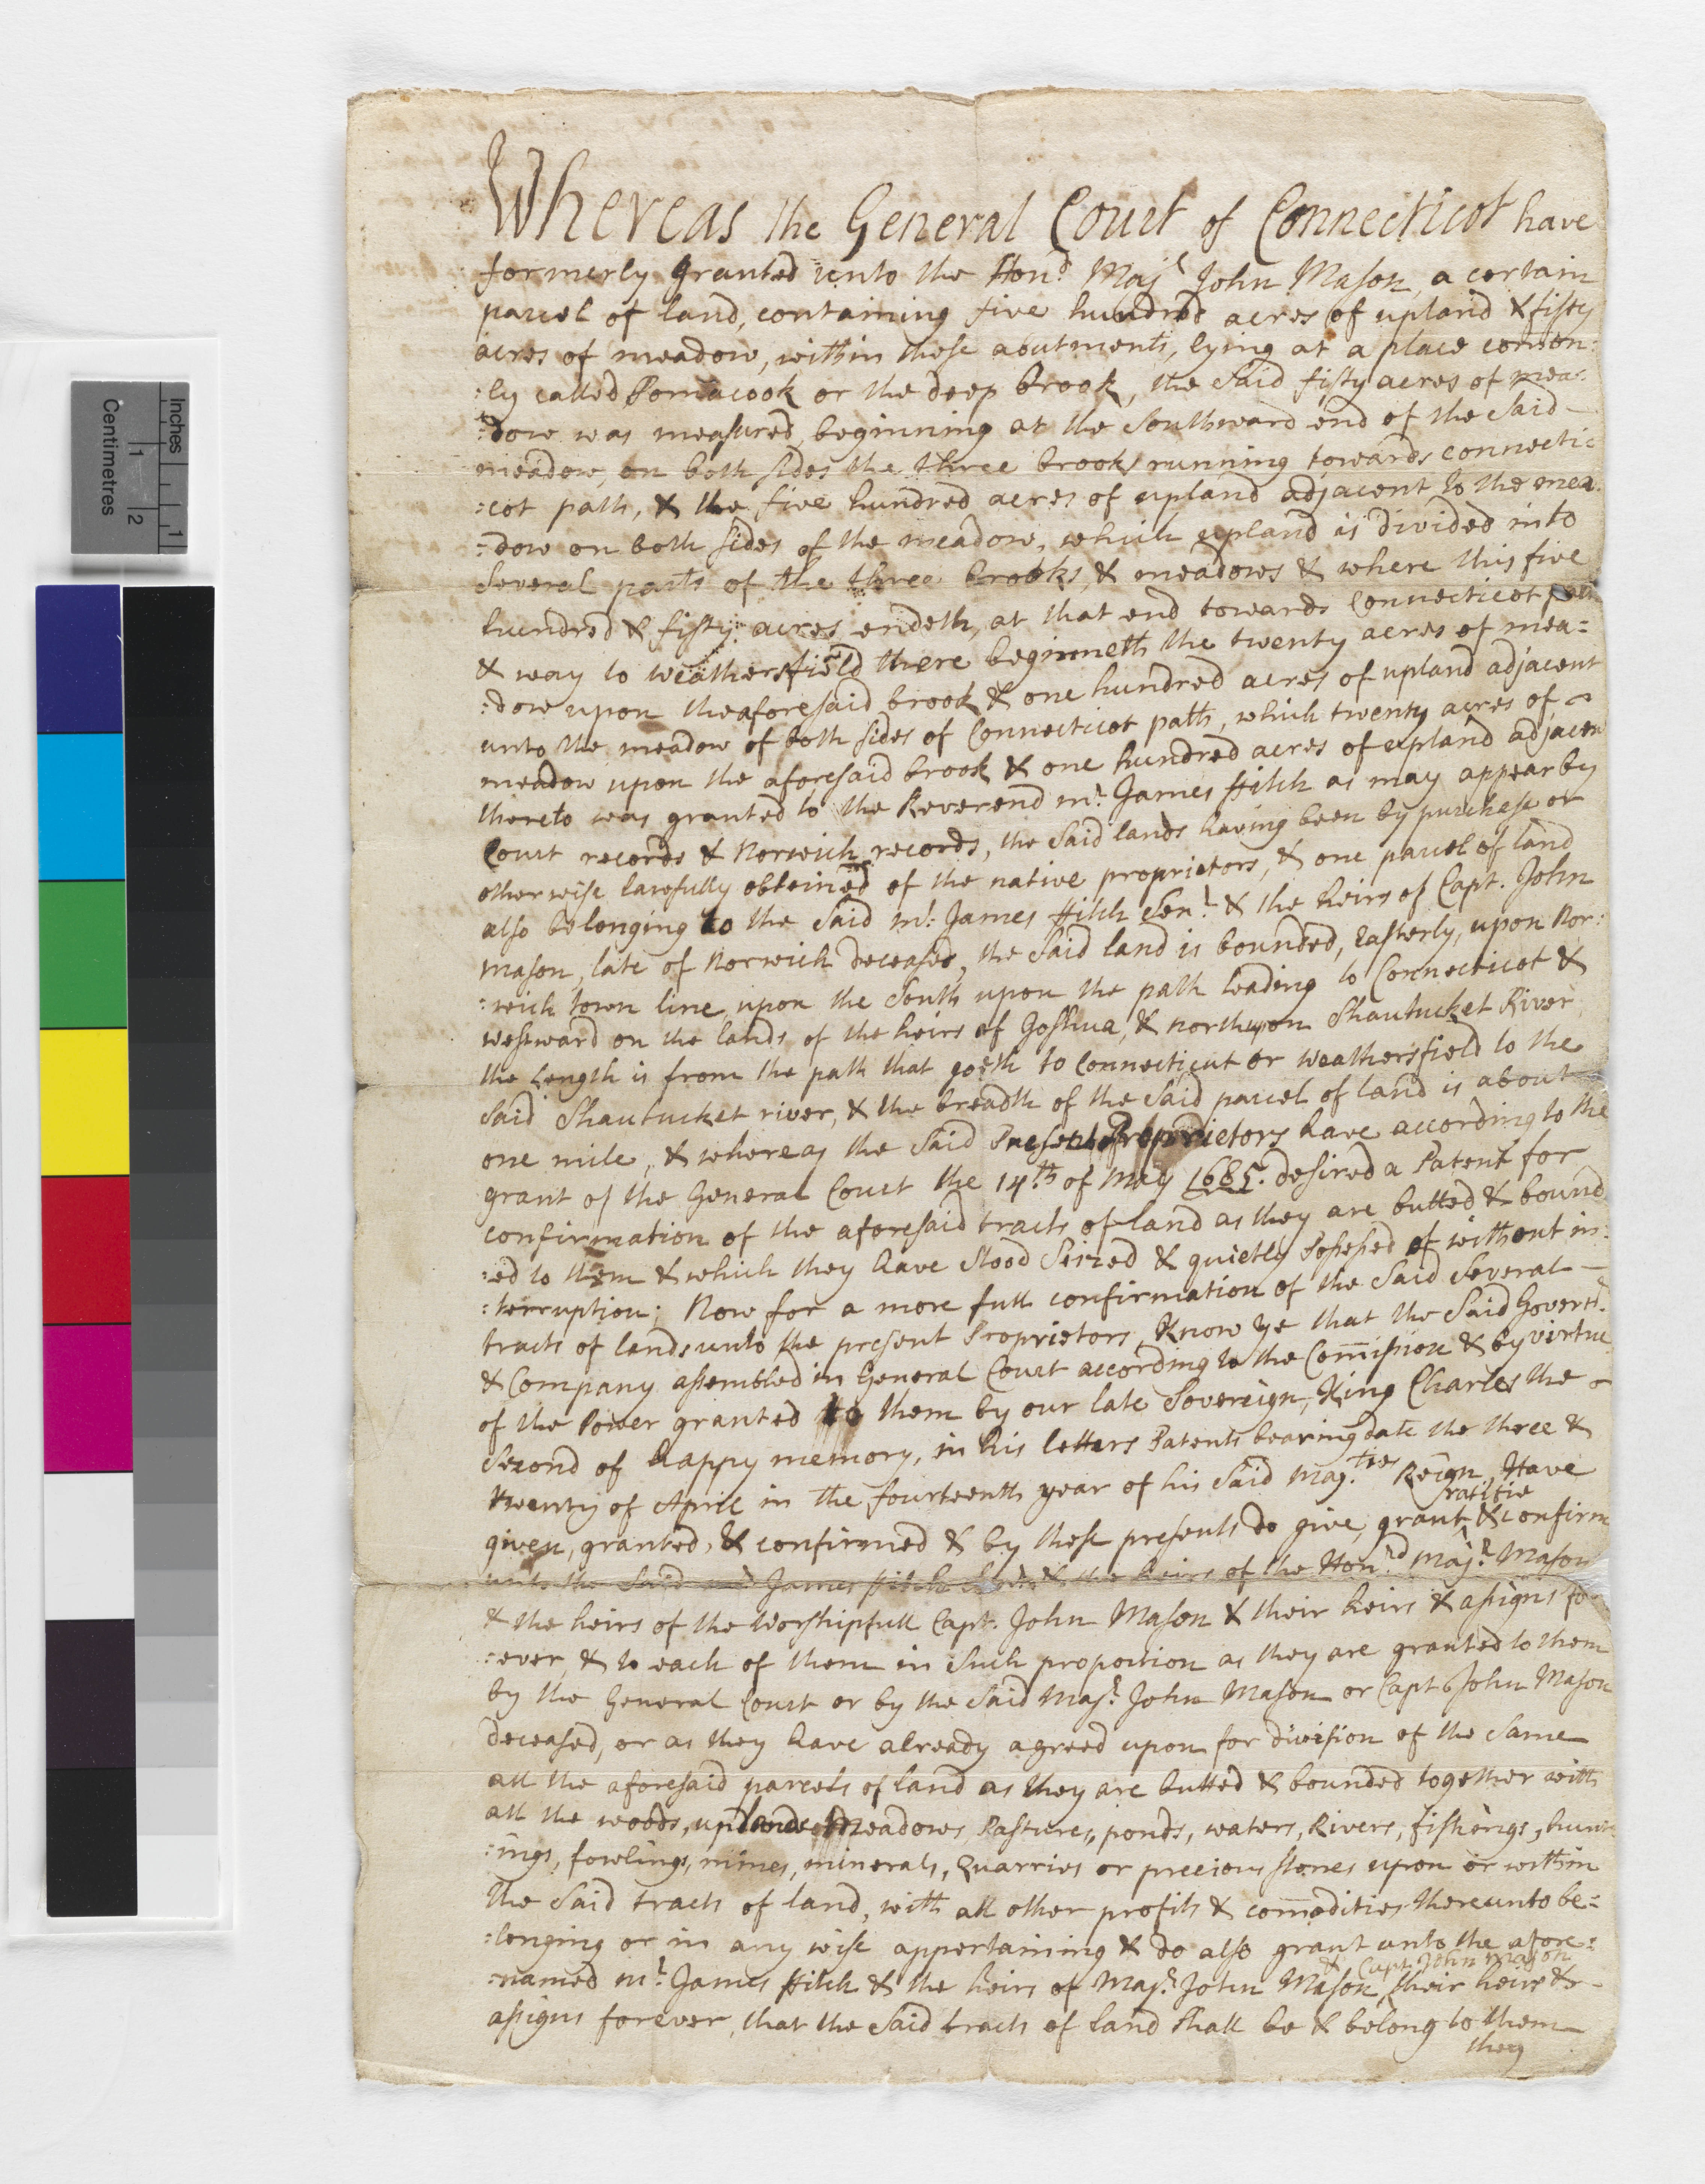 Whereas the General Court of Connecticot have
formerly granted unto the Hon:d Maj:r John Mason, a certain
parcel of land, containing five hundred acres of upland & fifty
acres of meadow, within these abutments, lying at a place comon:
:ly called Pomacook or the deep brook, the said fifty acres of mea:
:dow was measured, beginning at the Southward end of the said
meadow, on both sides the three brooks running towards connectic
:cot path, & the five hundred acres of upland adjacent to the mea
:dow on both sides of the meadow, which upland is divided into
several parts of the three brooks, & meadows & where this five
hundred & fifty acres endeth, at that end towards Connecticot path
& way to weathersfield there beginneth the twenty acres of mea=
:dow upon theaforesaid brook & one hundred acres of upland adjacent
unto the meadow of both sides of Connecticot path, which twenty acres of
meadow upon the aforesaid brook & one hundred acres of upland adjacen
thereto was granted to the Reverend mr. James Fitch as may appear by
Court records & Norwich records, the said lands having been by purchase or
otherwise lawfully obteined of the native proprietors, & one parcel of land
also belonging to the said mr: James Fitch Senr: & the heirs of Capt. John
mason, late of Norwich deceased, the said land is bounded, easterly, upon Nor:
:wich town line, upon the South upon the path leading to Connecticot &
westward on the lands of the heirs of Joshua, & north upon Shautucket River
the length is from the path that goeth to Connecticut or weathersfield to the
said Shautucket river, & the breadth of the said parcel of land is about
one mile, & whereas the said Present Proprietors have according to the
grant of the General Court the 14:th of May 1685. desired a Patent for
confirmation of the aforesaid tracts of land as they are butted & bound
:ed to them & which they have stood seized & quietly posessed of without in:
:terruption; Now for a more full confirmation of the said several
tracts of lands unto the present Proprietors, Know ye that the said Govern:r
& Company assembled in General Court according to the Comission & by virtue
of the Power granted to them by our late Sovereign, King Charles the
Second of happy memory, in his letters Patents bearing date the three &
twenty of April in the fourteenth year of his said Maj:ties Reign, Have
ratifie
given, granted, & confirmed & by these presents do give, grant & confirm
unto the said mr James Fitch Senr & the heirs of the Hon:rd Maj:r Mason
& the heirs of the Worshipfull Capt. John Mason & their heirs & assigns for
:ever, & to each of them in such proportion as they are granted to them
by the General Court or by the said Maj:r John Mason or Capt John Mason
deceased, or as they have already agreed upon for division of the same
all the aforesaid parcels of land as they are butted & bounded together with
all the woods, uplands Meadows, Pastures, ponds, waters, Rivers, fishings, hunt
:ings, fowlings, mines, minerals, Quarries or precious stones upon or within
the said tracts of land, with all other profits & comodities thereunto be=
:longing or in any wise appertaining & do also grant unto the afore:
& Capt. John Mason
:named mr: James Fitch & the heirs of Maj:r John Mason, their heirs &
assigns forever, that the said tracts of land shall be & belong to them
they
Inches
1
1
2
Centimetres